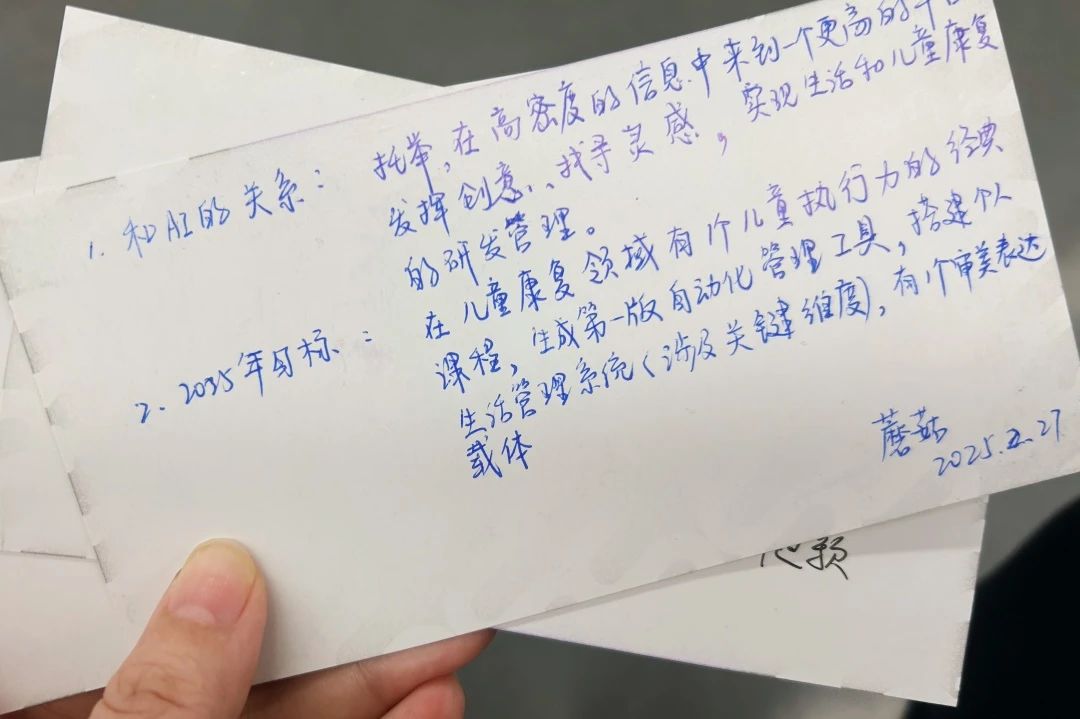 1. 和AI的关系： 托举，在高密度的信息中来到一个更高的平台
发挥创意、找寻灵感，实现生活和儿童康复
的研发管理。
2. 2035年目标： 在儿童康复领域有1个儿童执行力的经典
课程，生成第一版自动化管理工具，搭建个人
生活管理系统（涉及关键维度），有1个审美表达
载体
蘑菇
2025.2.27